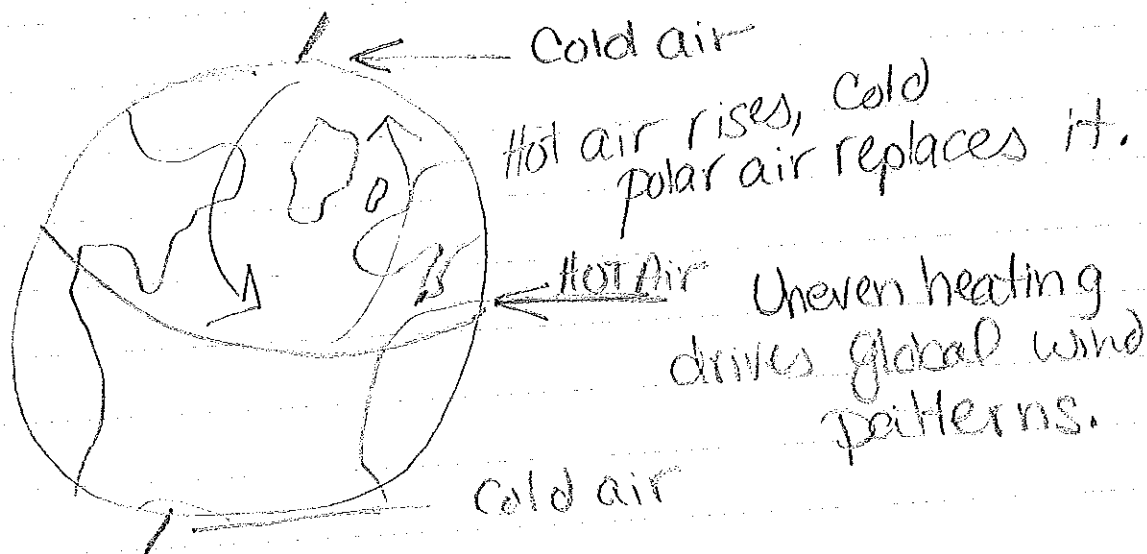 Cold air
Hot air rises, Cold
polar air replaces it.
Hot Air
Uneven heating
drives global wind
patterns.
Cold air